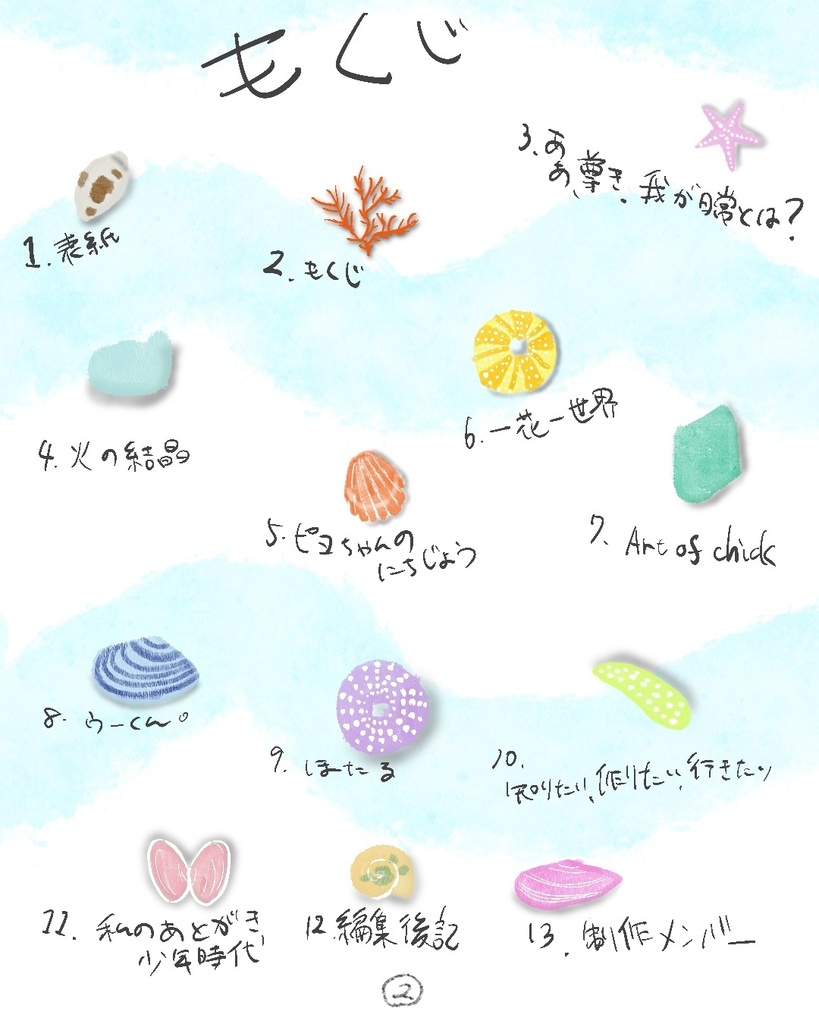 もくじ
1. 表紙
2. もくじ
3. ああ
あ、尊き、我が日常とは?
4. 火の結晶
5. ピヨちゃんの
にちじょう
6. 一花一世界
7. Art of chick
8. うーくん。
9. ほたる
10.
知りたい、作りたい、行きたい
11. 私のあとがき
少年時代
12. 編集後記
13. 制作メンバー
2